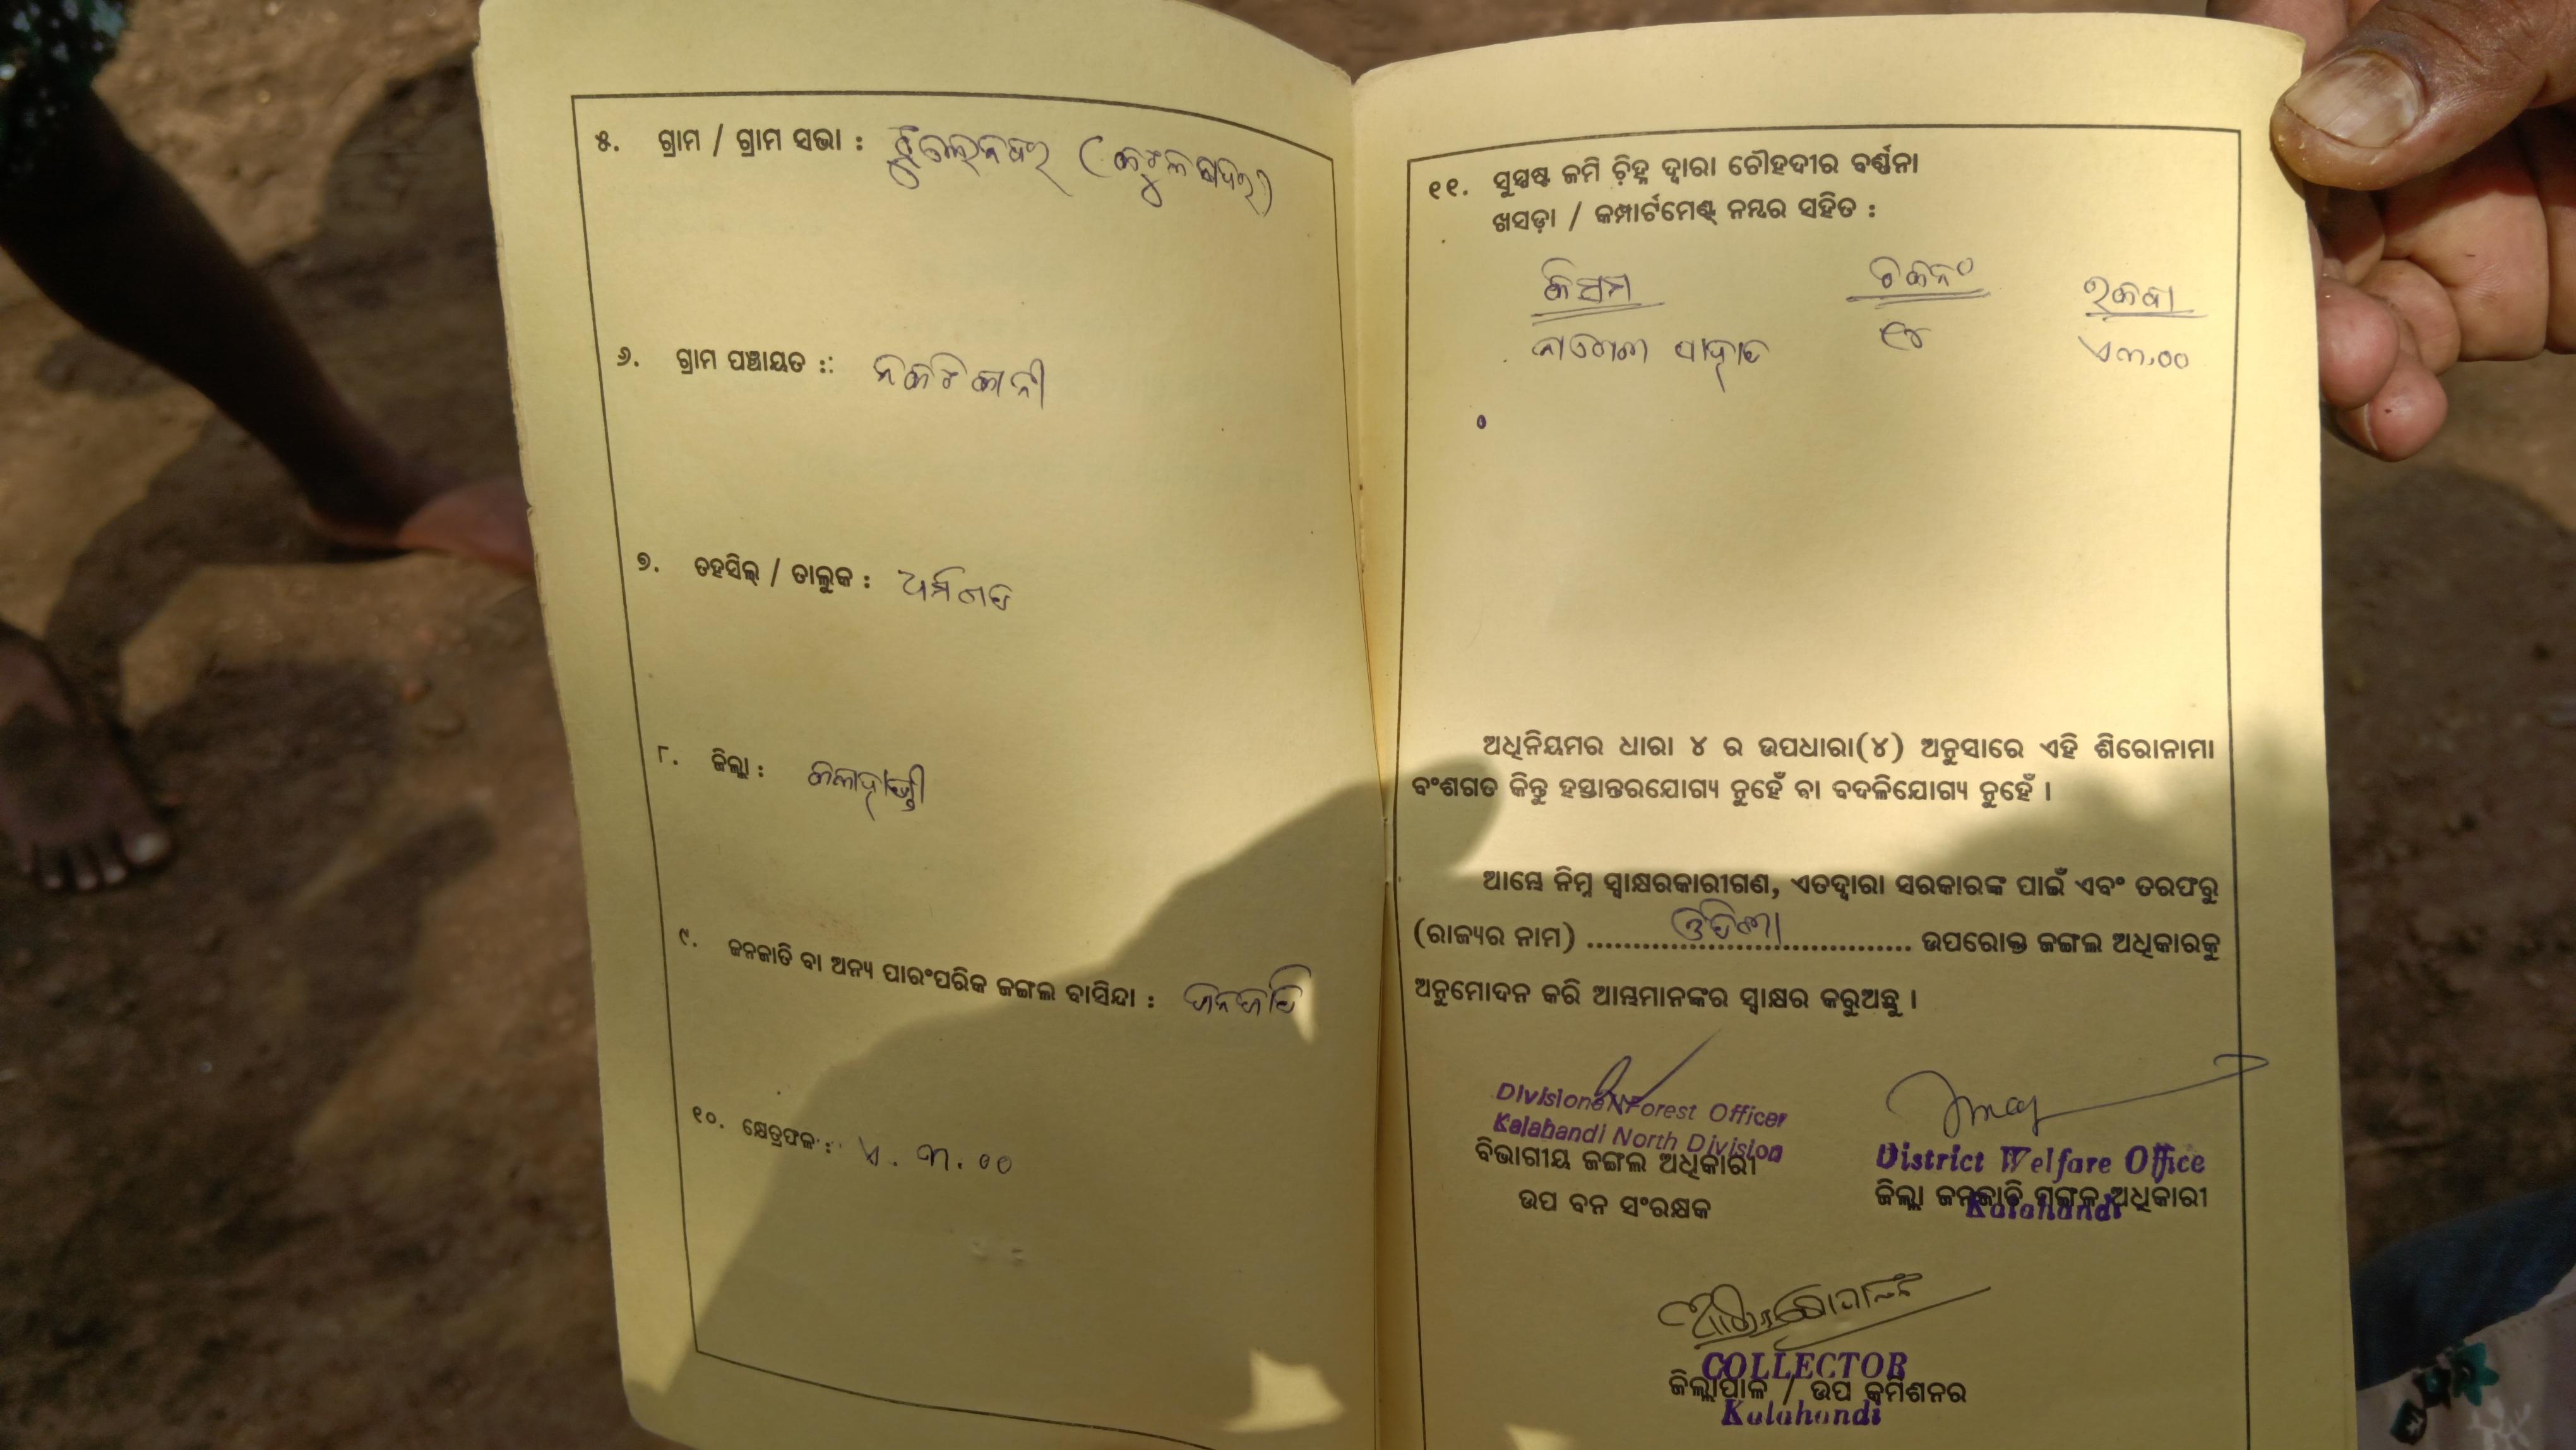 ୫. ଗ୍ରାମ / ଗ୍ରାମ ସଭା :
୬. ଗ୍ରାମ ପଞ୍ଚାୟତ :
୭. ତହସିଲ୍ / ତାଲୁକ :
୮. ଜିଲ୍ଲା : କଳାହାଣ୍ଡି
୯. ଜନଜାତି ବା ଅନ୍ୟ ପାରଂପରିକ ଜଙ୍ଗଲ ବାସିନ୍ଦା : ଜନଜାତି
୧୦. କ୍ଷେତ୍ରଫଳ : ଏ. ୩.୦୦
୧୧. ସୁସ୍ପଷ୍ଟ ଜମି ଚିହ୍ନ ଦ୍ୱାରା ଚୌହଦୀର ବର୍ଣ୍ଣନା
ଖସଡ଼ା / କମ୍ପାର୍ଟମେଣ୍ଟ୍ ନମ୍ବର ସହିତ :
କିସମ ରକବା
ଏ୩.୦୦
ଅଧିନିୟମର ଧାରା ୪ ର ଉପଧାରା(୪) ଅନୁସାରେ ଏହି ଶିରୋନାମା
ବଂଶଗତ କିନ୍ତୁ ହସ୍ତାନ୍ତରଯୋଗ୍ୟ ନୁହେଁ ବା ବଦଳିଯୋଗ୍ୟ ନୁହେଁ ।
ଆମ୍ଭେ ନିମ୍ନ ସ୍ୱାକ୍ଷରକାରୀଗଣ, ଏତଦ୍ୱାରା ସରକାରଙ୍କ ପାଇଁ ଏବଂ ତରଫରୁ
(ରାଜ୍ୟର ନାମ) ଓଡିଶା ଉପରୋକ୍ତ ଜଙ୍ଗଲ ଅଧିକାରକୁ
ଅନୁମୋଦନ କରି ଆମ୍ଭମାନଙ୍କର ସ୍ୱାକ୍ଷର କରୁଅଛୁ ।
Divisional Forest Officer
Kalahandi North Division
ବିଭାଗୀୟ ଜଙ୍ଗଲ ଅଧିକାରୀ
ଉପ ବନ ସଂରକ୍ଷକ
District Welfare Office
ଜିଲ୍ଲା ଜନଜାତି ମଙ୍ଗଳ ଅଧିକାରୀ
Kalahandi
COLLECTOR
ଜିଲ୍ଲାପାଳ / ଉପ କମିଶନର
Kalahandi